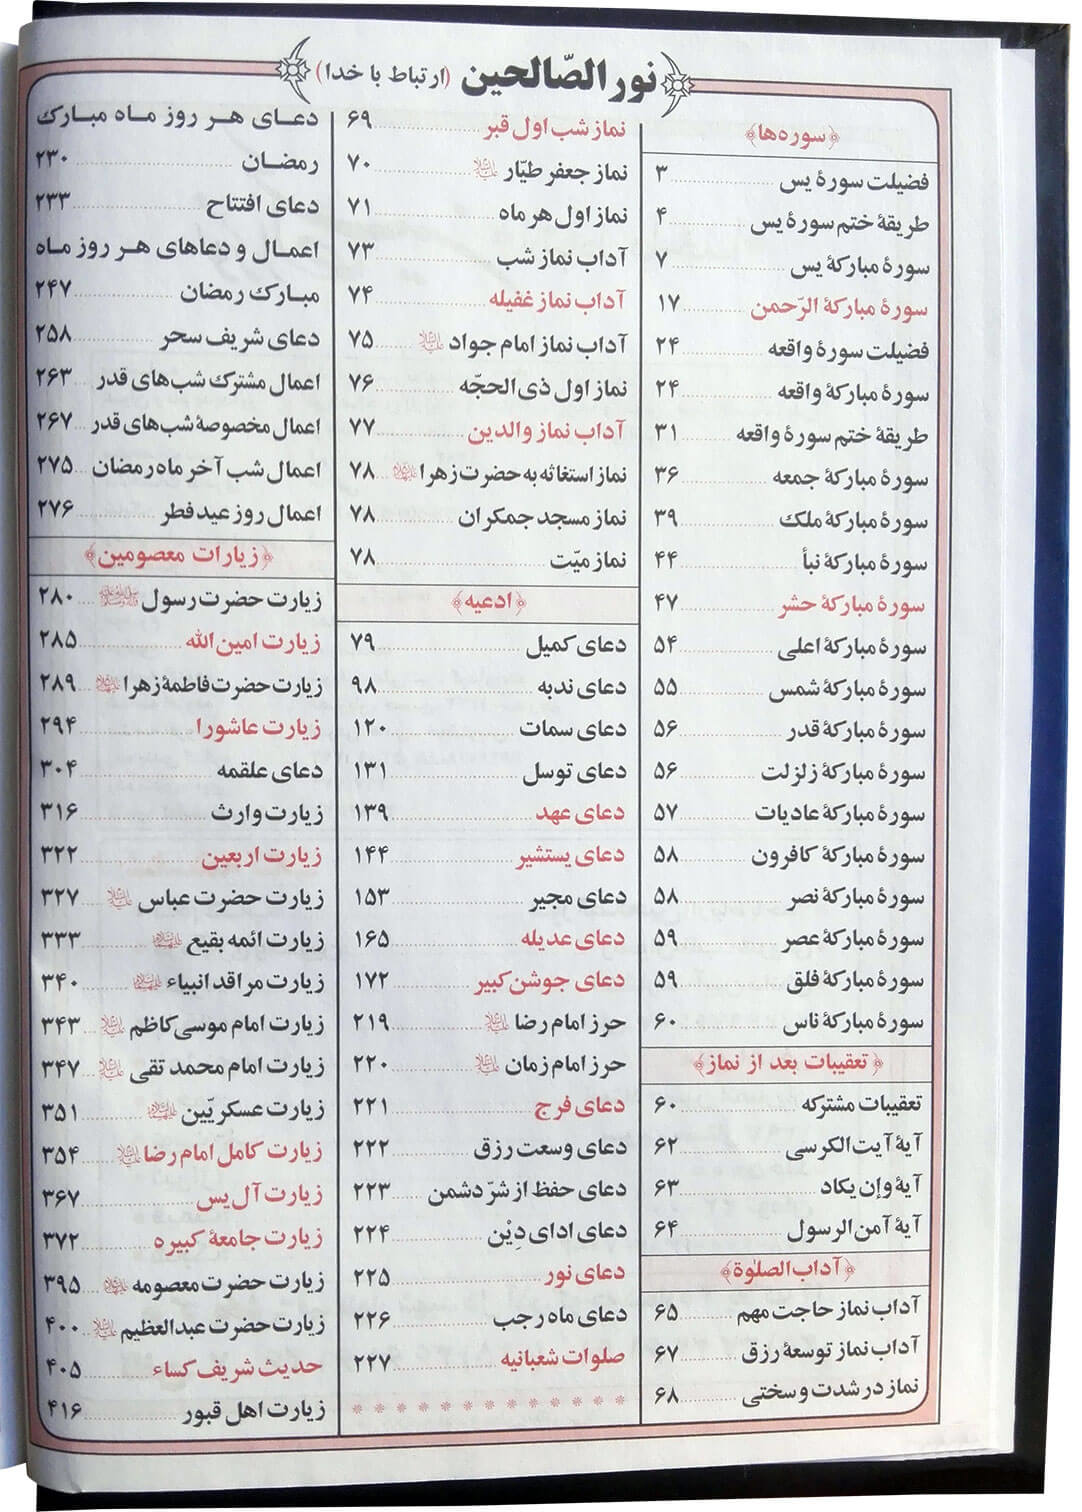 نور الصّالحین (ارتباط با خدا)
﴿سوره‌ها﴾
فضیلت سورهٔ یس ........ ۳
طریقهٔ ختم سورهٔ یس ........ ۴
سورهٔ مبارکهٔ یس ........ ۷
سورهٔ مبارکهٔ الرّحمن ........ ۱۷
فضیلت سورهٔ واقعه ........ ۲۴
سورهٔ مبارکهٔ واقعه ........ ۲۴
طریقهٔ ختم سورهٔ واقعه ........ ۳۱
سورهٔ مبارکهٔ جمعه ........ ۳۶
سورهٔ مبارکهٔ ملک ........ ۳۹
سورهٔ مبارکهٔ نبأ ........ ۴۴
سورهٔ مبارکهٔ حشر ........ ۴۷
سورهٔ مبارکهٔ اعلی ........ ۵۴
سورهٔ مبارکهٔ شمس ........ ۵۵
سورهٔ مبارکهٔ قدر ........ ۵۶
سورهٔ مبارکهٔ زلزلت ........ ۵۶
سورهٔ مبارکهٔ عادیات ........ ۵۷
سورهٔ مبارکهٔ کافرون ........ ۵۸
سورهٔ مبارکهٔ نصر ........ ۵۸
سورهٔ مبارکهٔ عصر ........ ۵۹
سورهٔ مبارکهٔ فلق ........ ۵۹
سورهٔ مبارکهٔ ناس ........ ۶۰
﴿تعقیبات بعد از نماز﴾
تعقیبات مشترکه ........ ۶۰
آیهٔ آیت الکرسی ........ ۶۲
آیهٔ و إن یکاد ........ ۶۳
آیهٔ آمن الرسول ........ ۶۴
﴿آداب الصلوة﴾
آداب نماز حاجت مهم ........ ۶۵
آداب نماز توسعهٔ رزق ........ ۶۷
نماز در شدت و سختی ........ ۶۸
نماز شب اول قبر ........ ۶۹
نماز جعفر طیّار علیه‌السلام ........ ۷۰
نماز اول هر ماه ........ ۷۱
آداب نماز شب ........ ۷۳
آداب نماز غفیله ........ ۷۴
آداب نماز امام جواد علیه‌السلام ........ ۷۵
نماز اول ذی الحجّه ........ ۷۶
آداب نماز والدین ........ ۷۷
نماز استغاثه به حضرت زهرا ........ ۷۸
نماز مسجد جمکران ........ ۷۸
نماز میّت ........ ۷۸
﴿ادعیه﴾
دعای کمیل ........ ۷۹
دعای ندبه ........ ۹۸
دعای سمات ........ ۱۲۰
دعای توسل ........ ۱۳۱
دعای عهد ........ ۱۳۹
دعای یستشیر ........ ۱۴۴
دعای مجیر ........ ۱۵۳
دعای عدیله ........ ۱۶۵
دعای جوشن کبیر ........ ۱۷۲
حرز امام رضا علیه‌السلام ........ ۲۱۹
حرز امام زمان علیه‌السلام ........ ۲۲۰
دعای فرج ........ ۲۲۱
دعای وسعت رزق ........ ۲۲۲
دعای حفظ از شرّ دشمن ........ ۲۲۳
دعای ادای دِیْن ........ ۲۲۴
دعای نور ........ ۲۲۵
دعای ماه رجب ........ ۲۲۶
صلوات شعبانیه ........ ۲۲۷
دعـای هـر روز مـاه مبـارک
رمضـان ........ ۲۳۰
دعای افتتاح ........ ۲۳۳
اعمـال و دعاهای هـر روز مـاه
مبـارک رمضان ........ ۲۴۷
دعای شریف سحر ........ ۲۵۸
اعمال مشترک شب‌های قدر ........ ۲۶۳
اعمال مخصوصهٔ شب‌های قدر ........ ۲۶۷
اعمال شب آخر ماه رمضان ........ ۲۷۵
اعمال روز عید فطر ........ ۲۷۶
﴿زیارات معصومین﴾
زیارت حضرت رسول ........ ۲۸۰
زیارت امین الله ........ ۲۸۵
زیارت حضرت فاطمهٔ زهرا ........ ۲۸۹
زیارت عاشورا ........ ۲۹۴
دعای علقمه ........ ۳۰۴
زیارت وارث ........ ۳۱۶
زیارت اربعین ........ ۳۲۲
زیارت حضرت عباس علیه‌السلام ........ ۳۲۷
زیارت ائمه بقیع ........ ۳۳۳
زیارت مراقد انبیاء ........ ۳۴۰
زیارت امام موسی کاظم علیه‌السلام ........ ۳۴۳
زیارت امام محمد تقی علیه‌السلام ........ ۳۴۷
زیارت عسکریّین ........ ۳۵۱
زیارت کامل امام رضا علیه‌السلام ........ ۳۵۴
زیارت آل یس ........ ۳۶۷
زیارت جامعهٔ کبیره ........ ۳۷۲
زیارت حضرت معصومه ........ ۳۹۵
زیارت حضرت عبدالعظیم علیه‌السلام ........ ۴۰۰
حدیث شریف کساء ........ ۴۰۵
زیارت اهل قبور ........ ۴۱۶